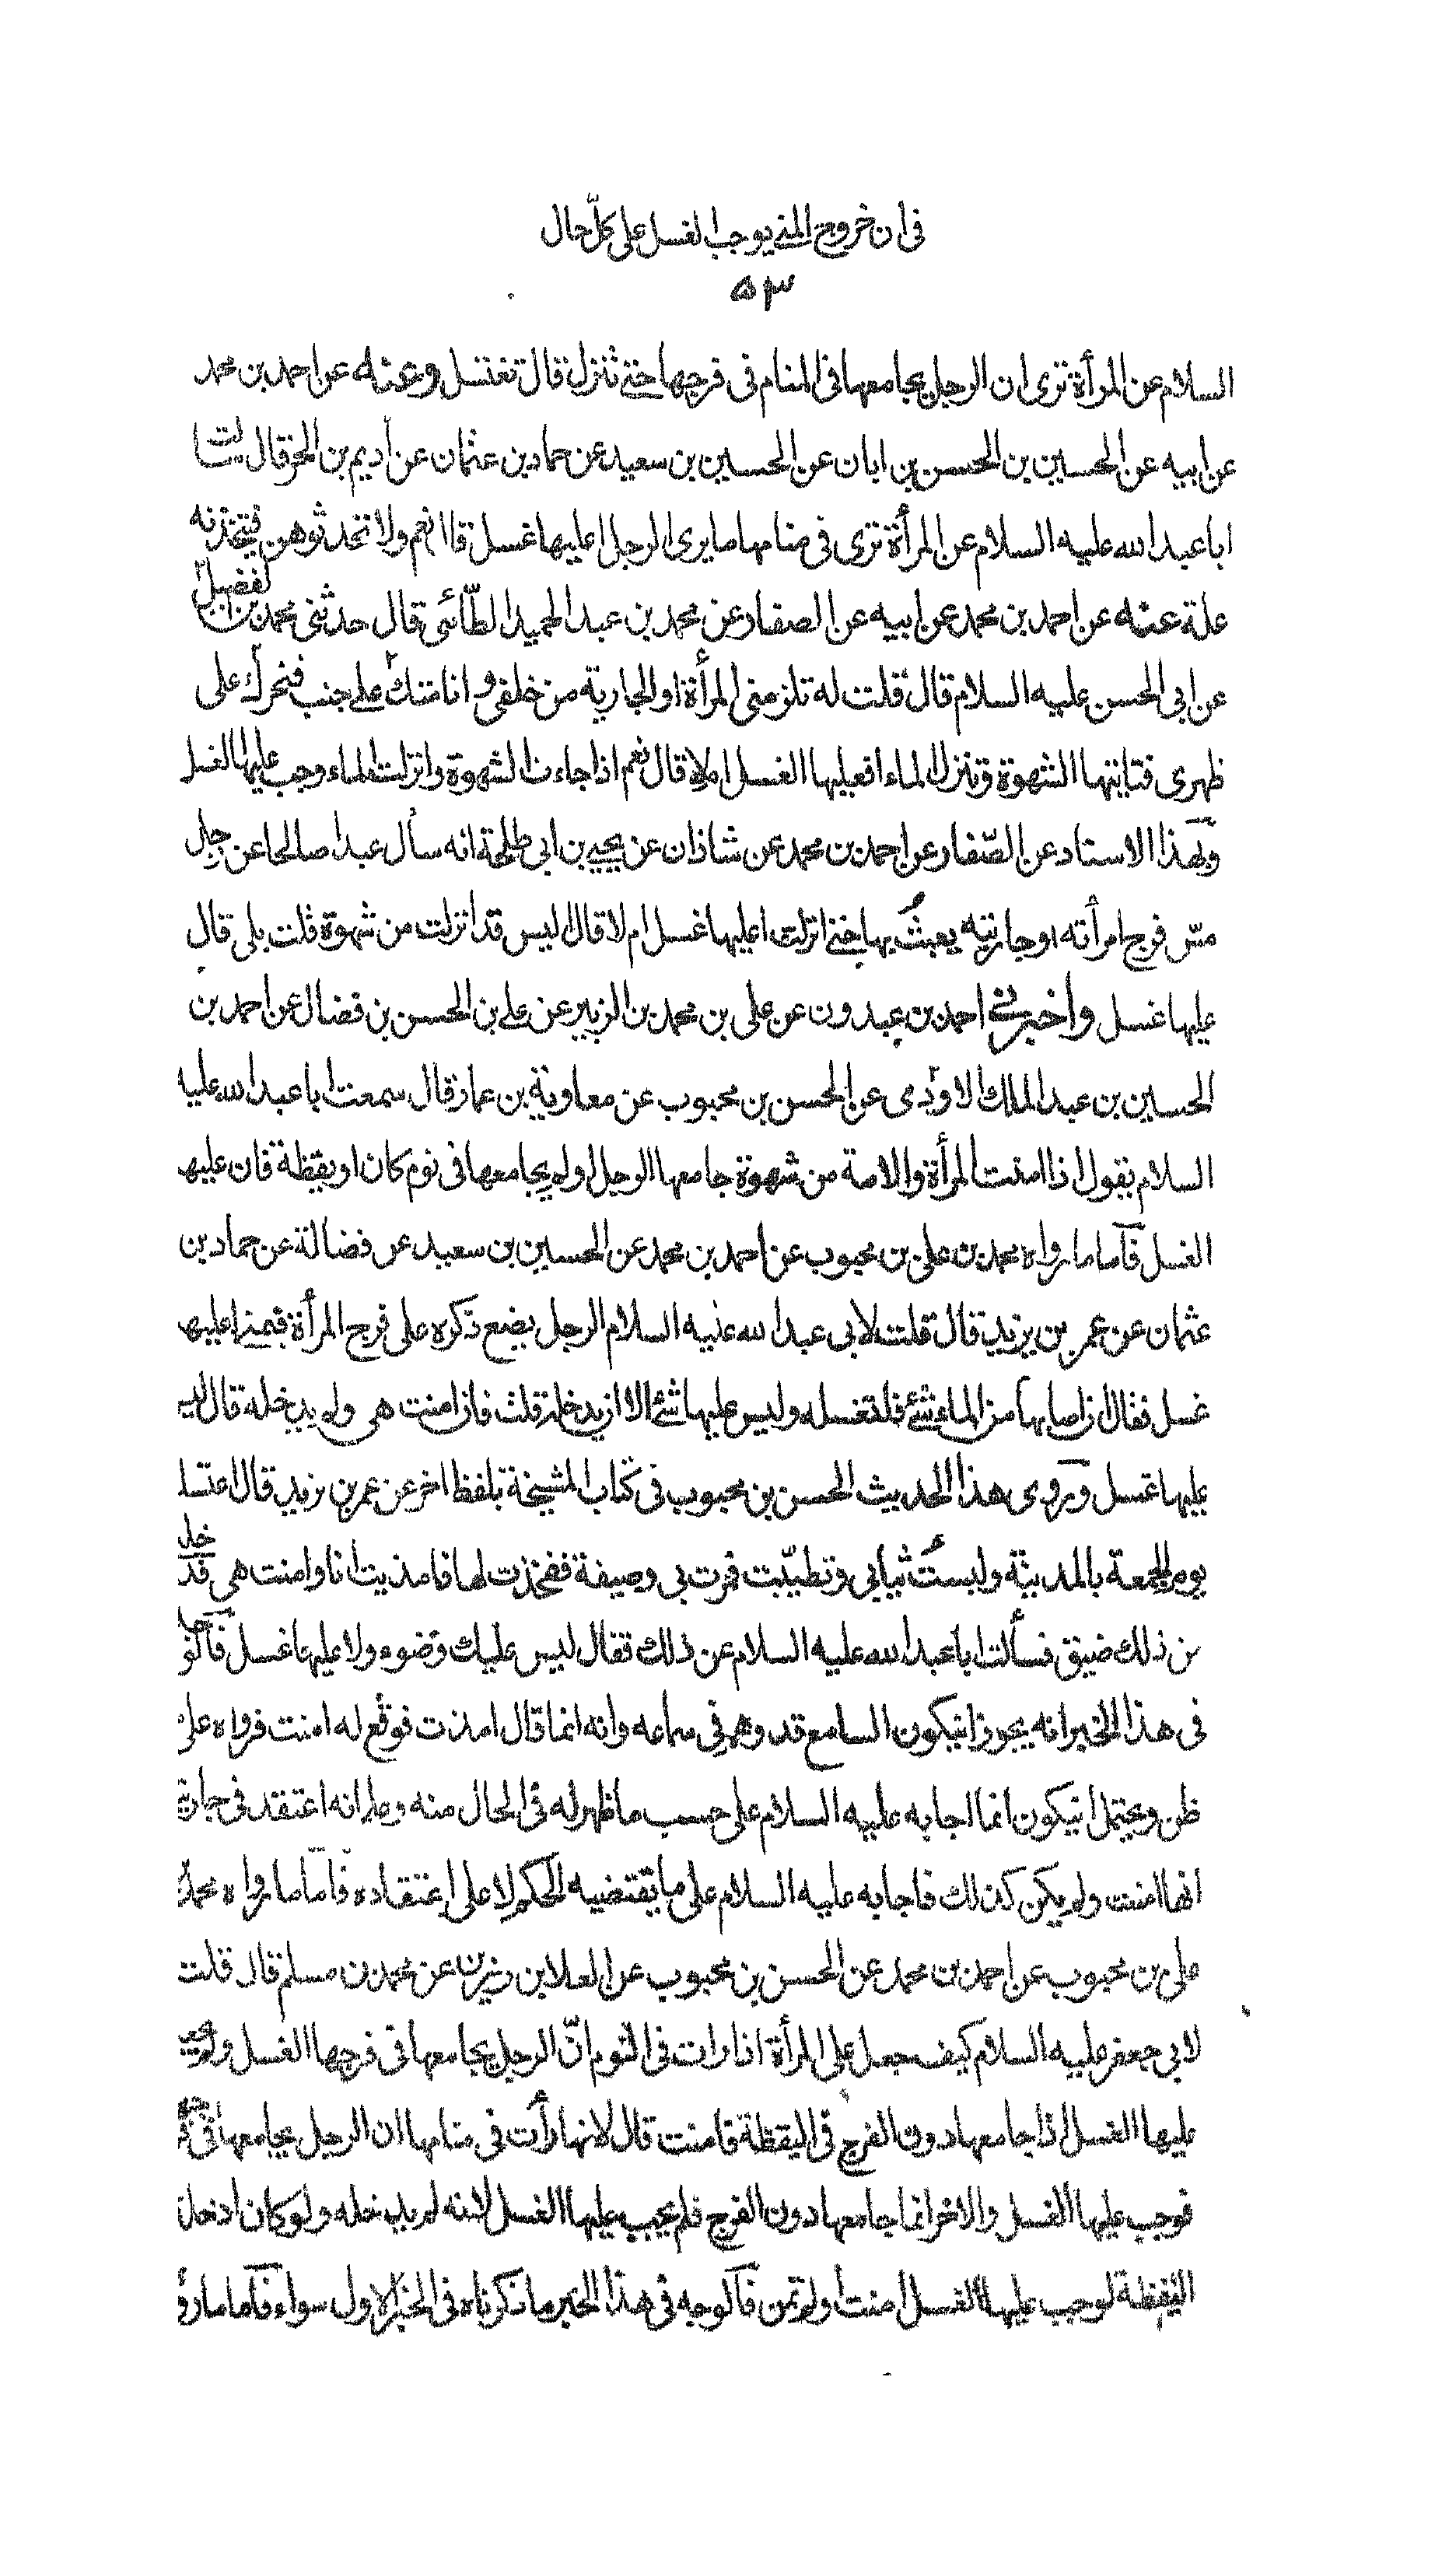 في ان خروج المني يوجب الغسل على كل حال
٥٣
السلام عن المرأة ترى ان الرجل يجامعها في المنام في فرجها حتى تنزل قال تغتسل وعنه عن احمد بن محمد
عن ابيه عن الحسين بن الحسن بن ابان عن الحسين بن سعيد عن حماد بن عثمان عن أديم بن الحر قال سألت
ابا عبد الله عليه السلام عن المرأة ترى في منامها ما يرى الرجل اعليها غسل قال نعم ولا تحدثوهن فيتخذنه
علة عنه عن احمد بن محمد عن ابيه عن الصفار عن محمد بن عبد الحميد الطّائي قال حدثني محمد بن الفضيل
عن ابي الحسن عليه السلام قال قلت له تلزمني المرأة او الجارية من خلفي وانا متكئ على جنب فتحرك على
ظهري فتاتيها الشهوة وتنزل الماء افعليها الغسل ام لا قال نعم اذا جاءت الشهوة وانزلت الماء وجب عليها الغسل
وبهذا الاسناد عن الصّفار عن احمد بن محمد عن شاذان عن يحيى بن ابي طلحة انه سأل عبدا صالحا عن رجل
مسّ فرج امرأته او جاريته يعبث بها حتى انزلت اعليها غسل ام لا قال اليس قد انزلت من شهوة قلت بلى قال
عليها غسل وأخبرني احمد بن عبدون عن علي بن محمد بن الزبير عن علي بن الحسن بن فضال عن احمد بن
الحسين بن عبد الملك الاودي عن الحسن بن محبوب عن معاوية بن عمار قال سمعت ابا عبد الله عليه
السلام يقول اذا امنت المرأة والامة من شهوة جامعها الرجل او لم يجامعها في نوم كان او يقظة فان عليها
الغسل فأما ما رواه محمد بن علي بن محبوب عن احمد بن محمد عن الحسين بن سعيد عن فضالة عن حماد بن
عثمان عن عمر بن يزيد قال قلت لابي عبد الله عليه السلام الرجل يضع ذكره على فرج المرأة فيمني اعليها
غسل فقال ان اصابها من الماء شئ فلتغسله وليس عليها شئ الا ان يدخله قلت فان امنت هي ولم يدخله قال ليس
عليها غسل وروى هذا الحديث الحسن بن محبوب في كتاب المشيخة بلفظ اخر عن عمر بن يزيد قال اغتسلت
يوم الجمعة بالمدينة ولبست ثيابي وتطيّبت فمرت بي وصيفة ففخذت لها فامذيت انا وامنت هي فدخلني
من ذلك ضيق فسألت ابا عبد الله عليه السلام عن ذلك فقال ليس عليك وضوء ولا عليها غسل فالوجه
في هذا الخبر انه يجوز ان يكون السامع قد وهم في سماعه وانه انما قال امذت فوقع له امنت فرواه على ما
ظن ويحتمل ان يكون انما اجابه عليه السلام على حسب ما ظهر له في الحال منه وعلم انه اعتقد في جاريته
انها امنت ولم يكن كذلك فاجابه عليه السلام على ما يقتضيه الحكم لا على اعتقاده فأما ما رواه محمد بن
علي بن محبوب عن احمد بن محمد عن الحسن بن محبوب عن العلا بن رزين عن محمد بن مسلم قال قلت
لابي جعفر عليه السلام كيف جعل على المرأة اذا رات في النوم انّ الرجل يجامعها في فرجها الغسل ولم يجعل
عليها الغسل اذا جامعها دون الفرج في اليقظة فامنت قال لانها رأت في منامها ان الرجل يجامعها في فرجها
فوجب عليها الغسل والاخر انما جامعها دون الفرج فلم يجب عليها الغسل لانه لم يدخله ولو كان ادخله في
اليقظة لوجب عليها الغسل امنت او لم تمن فالوجه في هذا الخبر ما ذكرناه في الخبر الاول سواء فأما ما روى